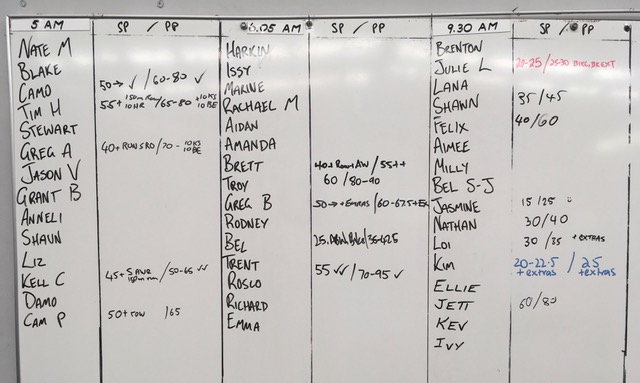 5 AM SP / PP
NATE M
BLAKE
CAMO 50→ ✓ / 60-80 ✓
TIM H 55+ 10HR / 65-80 +10KS 10BE
STEWART
GREG A 40+ RUN SRO / 70 - 10KS 10BE
JASON V
GRANT B
ANNELI
SHAUN
LIZ
KELL C 45+ 5 AWR / 50-65 ✓✓
DAMO
CAM P 50+ row / 65
6.05 AM SP / PP
HARKIN
ISSY
MARINE
RACHAEL M
AIDAN
AMANDA
BRETT 40+ Row AW / 55++
TROY 60 / 80-90
GREG B 50→ + EXTRAS / 60-67.5+Ex
RODNEY
BEL 25. / 35-42.5
TRENT 55 ✓✓ / 70-95 ✓
ROSCO
RICHARD
EMMA
9.30 AM SP / PP
BRENTON
JULIE L 20-25 / 25-30
LANA
SHAWN 35 / 45
FELIX 40 / 60
AIMEE
MILLY
BEL S-J
JASMINE 15 / 25
NATHAN 30 / 40
LOI 30 / 35 + EXTRAS
KIM 20-22.5 / 25
+ extras + extras
ELLIE
JETT 60 / 80
KEV
IVY